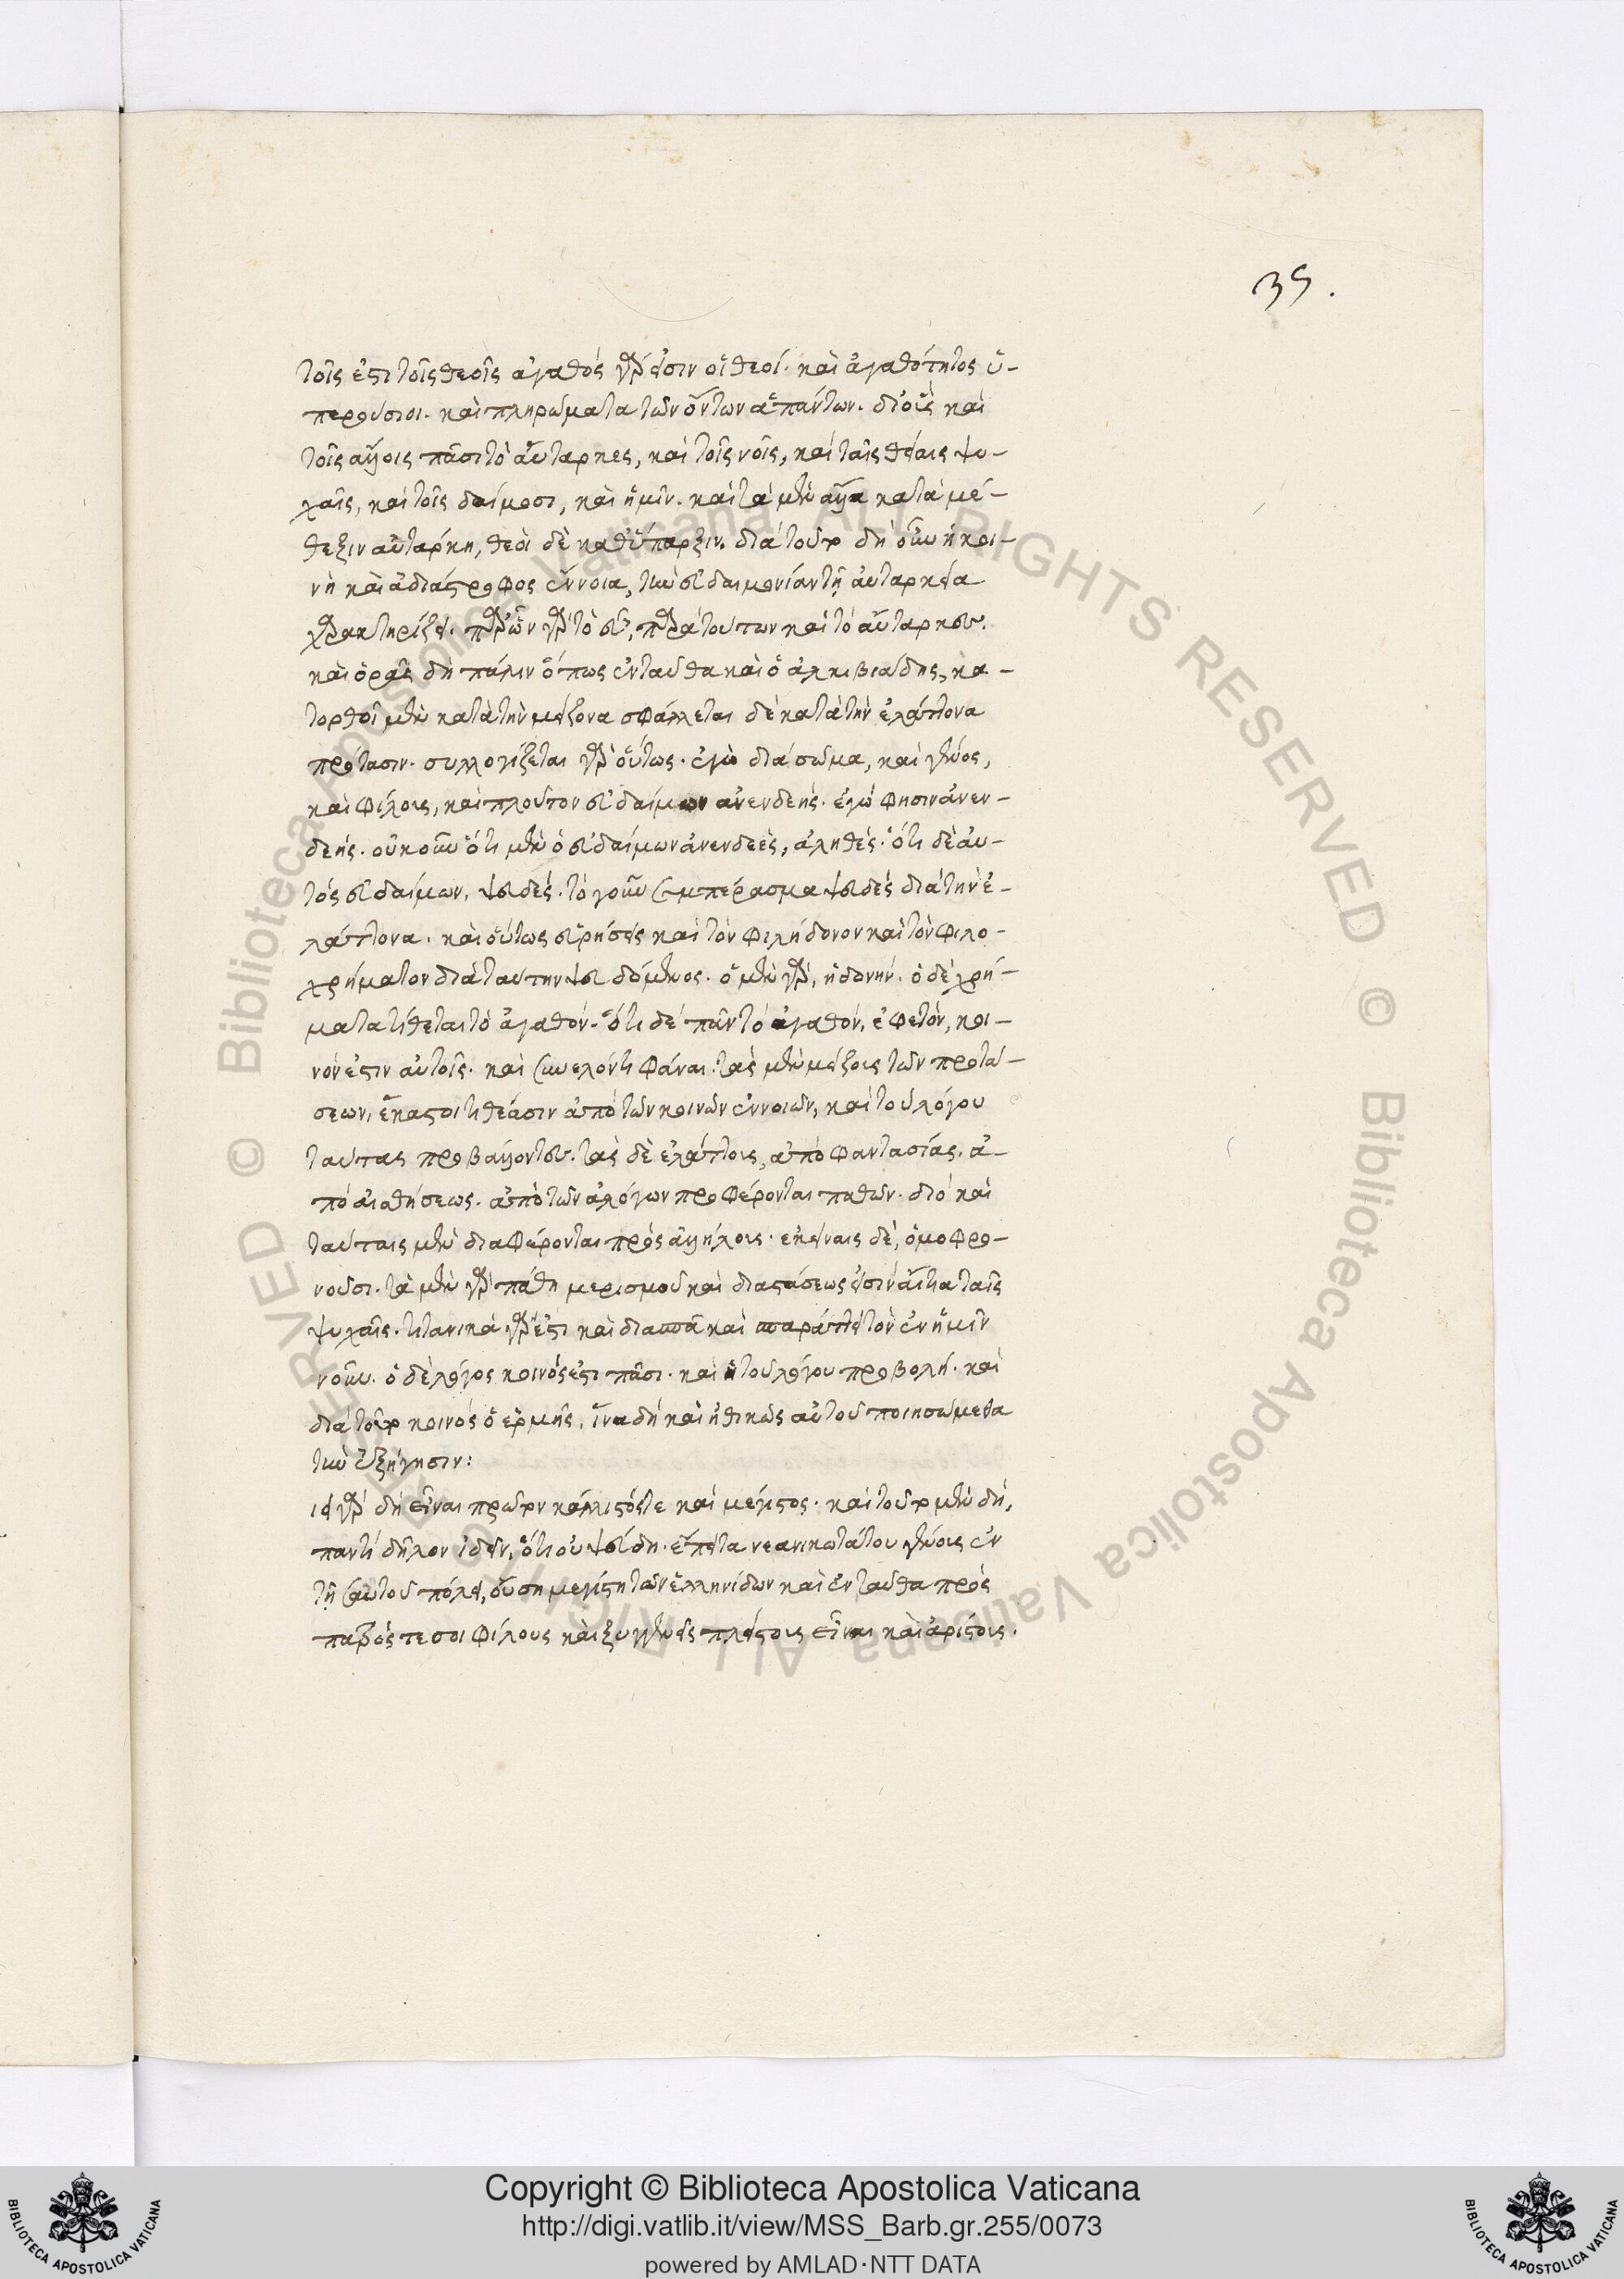 35.
τοῖς ἐστι τοῖς θεοῖς ἀγαθός γάρ εἰσιν οἱ θεοί. καὶ ἀγαθότητος ὑ-
περούσιοι. καὶ πληρώματα τῶν ὄντων ἁπάντων. δι' οὓς καὶ
τοῖς ἄλλοις πᾶσι τὸ αὔταρκες, καὶ τοῖς νοῖς, καὶ ταῖς θείαις ψυ-
χαῖς, καὶ τοῖς δαίμοσι, καὶ ἡμῖν. καὶ τὰ μὲν ἄλλα κατὰ μέ-
θεξιν αὐτάρκη, θεοὶ δὲ καθ' ὕπαρξιν. διὰ τοῦτο δὴ οὖν ἡ κοι-
νὴ καὶ ἀδιάστροφος ἔννοια, τὴν εὐδαιμονίαν τῇ αὐταρκείᾳ
χαρακτηρίζει. παρ' ὧν γὰρ τὸ εὖ, παρὰ τούτων καὶ τὸ αὔταρκες.
καὶ ὁρᾷς δὴ πάλιν ὅπως ἐνταῦθα καὶ ὁ ἀλκιβιάδης, κα-
τορθοῖ μὲν κατὰ τὴν μείζονα σφάλλεται δὲ κατὰ τὴν ἐλάττονα
πρότασιν. συλλογίζεται γὰρ οὕτως. ἐγὼ διὰ σῶμα, καὶ γένος,
καὶ φίλους, καὶ πλοῦτον εὐδαίμων ἀνενδεής. ἐγώ φησιν ἀνεν-
δεής. οὐκοῦν ὅτι μὲν ὁ εὐδαίμων ἀνενδεὲς, ἀληθές. ὅτι δὲ αὐ-
τὸς εὐδαίμων, ψευδές. τὸ γοῦν συμπέρασμα ψευδὲς διὰ τὴν ἐ-
λάττονα. καὶ οὕτως εὑρήσεις καὶ τὸν φιλήδονον καὶ τὸν φιλο-
χρήματον διὰ ταύτην ψευδόμενος. ὁ μὲν γὰρ, ἡδονήν. ὁ δὲ χρή-
ματα τίθεται τὸ ἀγαθόν. ὅτι δὲ πᾶν τὸ ἀγαθόν, ἐφετόν, κοι-
νόν ἐστιν αὐτοῖς. καὶ συνελόντι φάναι. τὰς μὲν μείζους τῶν προτά-
σεων, ἕκαστοι τιθέασιν ἀπὸ τῶν κοινῶν ἐννοιῶν, καὶ τοῦ λόγου
ταύτας προβάλλοντες. τὰς δὲ ἐλάττους, ἀπὸ φαντασίας. ἀ-
πὸ αἰσθήσεως. ἀπὸ τῶν ἀλόγων προφέρονται παθῶν. διὸ καὶ
ταύταις μὲν διαφέρονται πρὸς ἀλλήλους. ἐκείναις δὲ, ὁμοφρο-
νοῦσι. τὰ μὲν γὰρ πάθη μερισμοῦ καὶ διαστάσεώς εἰσιν αἴτια ταῖς
ψυχαῖς. τιτανικὰ γάρ ἐστι καὶ διασπᾶ καὶ σπαράττει τὸν ἐν ἡμῖν
νοῦν. ὁ δὲ λόγος κοινός ἐστι πᾶσι. καὶ ἡ τοῦ λόγου προβολή. καὶ
διὰ τοῦτο κοινὸς ὁ ἑρμῆς, ἵνα δὴ καὶ ἠθικῶς αὐτοῦ ποιησώμεθα
τὴν ἐξήγησιν:
οἴει γὰρ δὴ εἶναι πρῶτον κάλλιστός τε καὶ μέγιστος. καὶ τοῦτο μὲν δὴ,
παντὶ δῆλον ἰδεῖν, ὅτι οὐ ψεύδη. ἔπειτα νεανικωτάτου γένους ἐν
τῇ σεαυτοῦ πόλει, οὔσῃ μεγίστῃ τῶν ἑλληνίδων καὶ ἐνταῦθα πρὸς
πατρός τε σοι φίλους καὶ ξυγγενεῖς πλείστους εἶναι καὶ ἀρίστους.
Copyright © Biblioteca Apostolica Vaticana
http://digi.vatlib.it/view/MSS_Barb.gr.255/0073
powered by AMLAD·NTT DATA